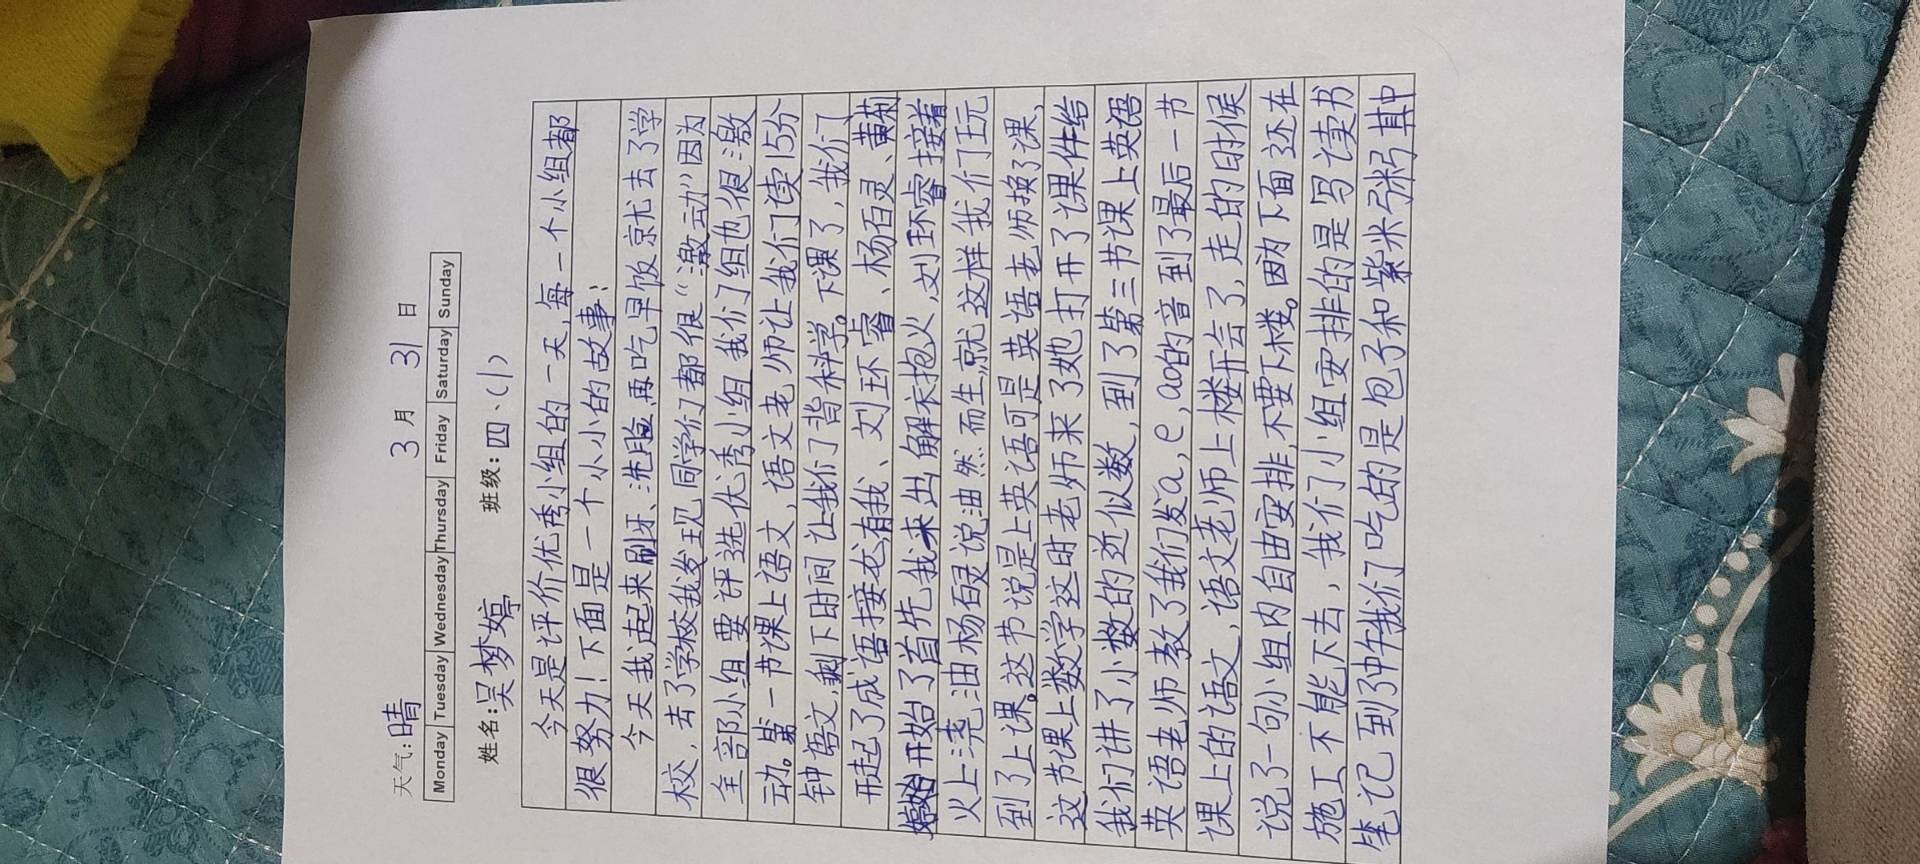 天气:晴 3月31日
Monday Tuesday Wednesday Thursday Friday Saturday Sunday
姓名:吴梦婷 班级:四、(1)
今天是评价优秀小组的一天,每一个小组都
很努力!下面是一个小小的故事:
今天我起来刷牙、洗脸,再吃早饭就去了学
校,去了学校我发现同学们都很“激动”因为
全部小组要评选优秀小组,我们组也很激
动。第一节课上语文,语文老师让我们读15分
钟语文,剩下时间让我们背科学。下课了,我们
玩起了成语接龙,有我、刘环睿、杨百灵、黄
开始了首先我来出解衣抱火,刘环睿接着
火上浇油杨百灵说油然而生,就这样我们玩
到了上课。这节说是上英语可是英语老师换了课,
这节课上数学这时老师来了她打开了课件给
我们讲了小数的近似数,到了第三节课上英语
英语老师教了我们发a,e,ao的音到了最后一节
课上的语文,语文老师上楼开会了,走的时候
说了一句小组内自由安排,不要下楼。因为下面还在
施工不能下去,我们小组安排的是写读书
笔记到了中午我们吃的是包子和紫米粥其中